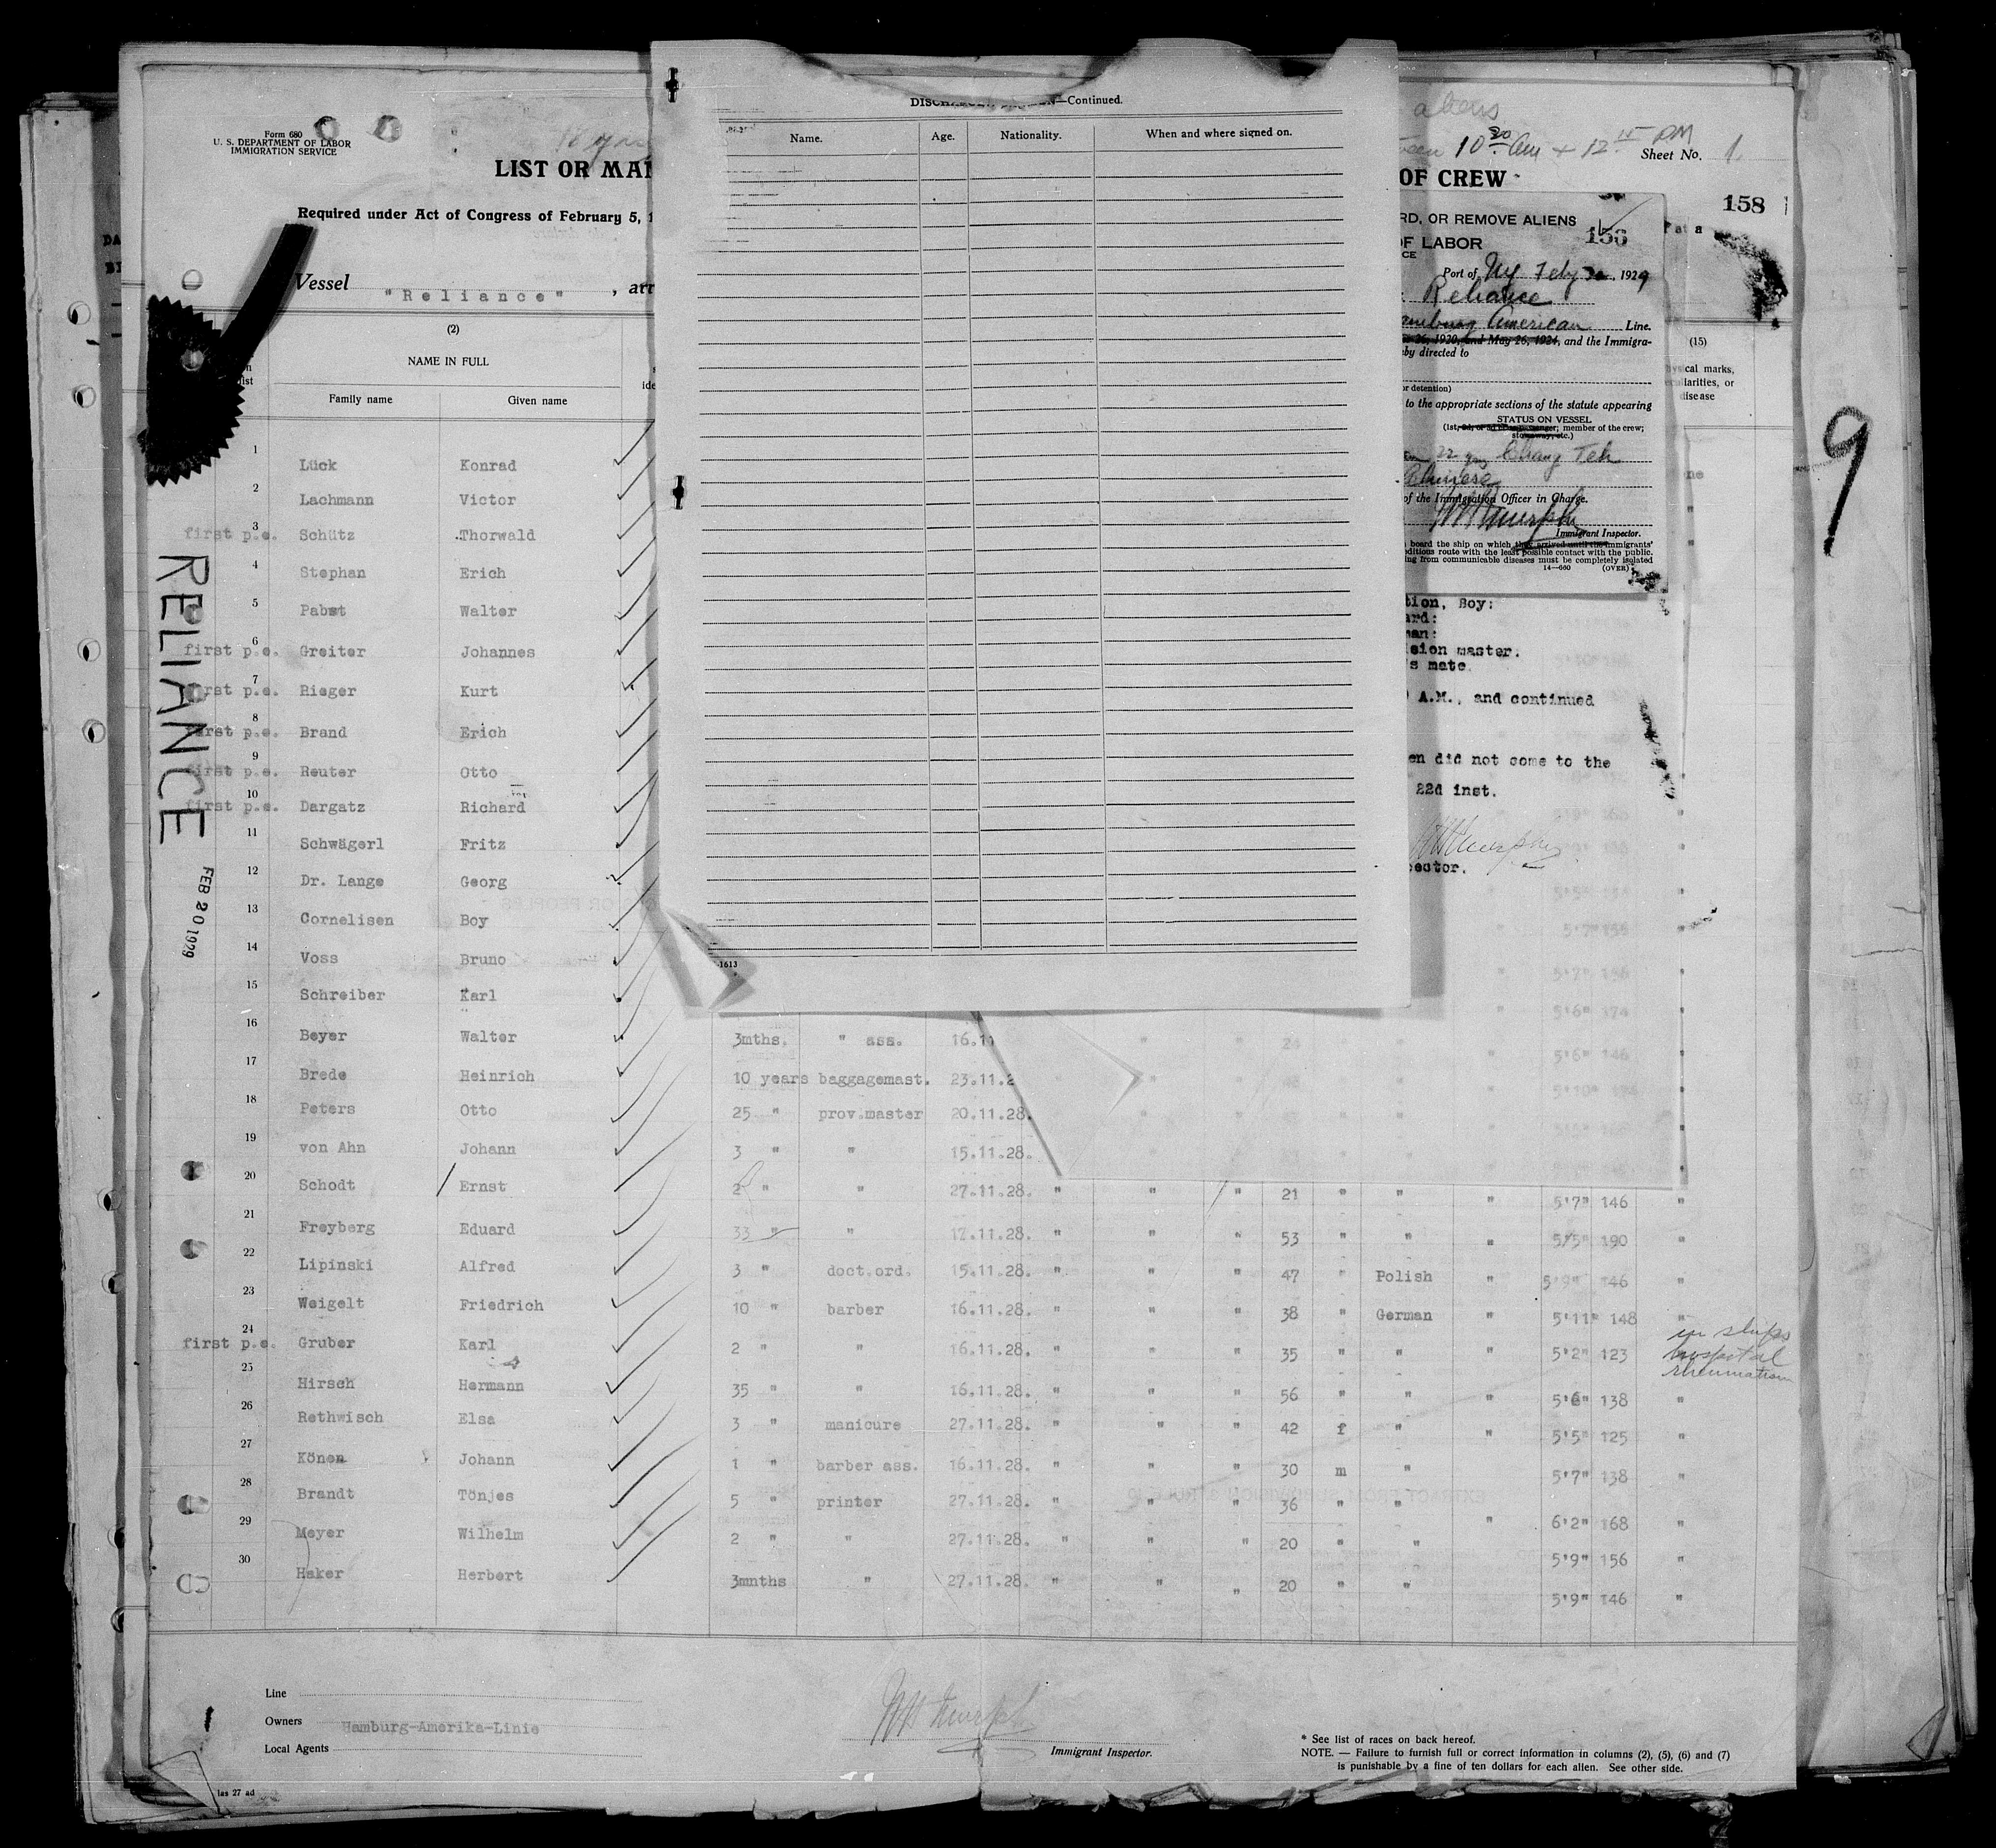 Form 680
U. S. DEPARTMENT OF LABOR
IMMIGRATION SERVICE
LIST OR MAN
Required under Act of Congress of February 5, 1
Vessel "Reliance", arr
(2)
NAME IN FULL
Family name Given name
1 Lück Konrad
2 Lachmann Victor
first p.e. 3 Schütz Thorwald
4 Stephan Erich
5 Pabst Walter
first p.e. 6 Greiter Johannes
first p.e. 7 Rieger Kurt
first p.e. 8 Brand Erich
first p.e. 9 Reuter Otto
first p.e. 10 Dargatz Richard
11 Schwägerl Fritz
12 Dr. Lange Georg
13 Cornelisen Boy
14 Voss Bruno
15 Schreiber Karl
16 Beyer Walter 3mths. " ass. 16.11
17 Brede Heinrich 10 years baggagemast. 23.11.2
18 Peters Otto 25 " prov.master 20.11.28.
19 von Ahn Johann 3 " " 15.11.28.
20 Schodt Ernst 2 " " 27.11.28. " " " 21 " " " 5'7" 146 "
21 Freyberg Eduard 33 " " 17.11.28. " " " 53 " " " 5'5" 190 "
22 Lipinski Alfred 3 " doct.ord. 15.11.28. " " " 47 " Polish " 5'9" 146 "
23 Weigelt Friedrich 10 " barber 16.11.28. " " " 38 " German " 5'11" 148 "
first p.e. 24 Gruber Karl 2 " " 16.11.28. " " " 35 " " " 5'2" 123 in ships hospital rheumatism
25 Hirsch Hermann 35 " " 16.11.28. " " " 56 " " " 5'6" 138 "
26 Rethwisch Elsa 3 " manicure 27.11.28. " " " 42 f " " 5'5" 125 "
27 Könen Johann 1 " barber ass. 16.11.28. " " " 30 m " 5'7" 138 "
28 Brandt Tönjes 5 " printer 27.11.28. " " " 36 " " " 6'2" 168 "
29 Meyer Wilhelm 2 " " 27.11.28. " " " 20 " " 5'9" 156 "
30 Haker Herbert 3mnths " 27.11.28. " " " 20 " " 5'9" 146 "
RELIANCE
FEB 20 1929
Line
Owners Hamburg-Amerika-Linie
Local Agents
Immigrant Inspector.
* See list of races on back hereof.
NOTE. — Failure to furnish full or correct information in columns (2), (5), (6) and (7)
is punishable by a fine of ten dollars for each alien. See other side.
—Continued.
Name. Age. Nationality. When and where signed on.
1613
10 30 am + 12 15 PM
Sheet No. 1.
OF CREW
158
RD, OR REMOVE ALIENS
OF LABOR
Port of NY Feby 1929
Reliance
American Line.
26, 1920, and May 26, 1924, and the Immigra-
by directed to
or detention)
to the appropriate sections of the statute appearing
STATUS ON VESSEL
member of the crew;
stowaway, etc.)
22 Chang Teh
Chinese
of the Immigration Officer in Charge.
Immigrant Inspector.
board the ship on which they arrived until the immigrants'
ditious route with the least possible contact with the public.
ing from communicable diseases must be completely isolated
14—660 (OVER)
tion, Boy:
ard:
man:
ision master.
's mate.
A.M., and continued
en did not come to the
22d inst.
pector.
(15)
ysical marks,
culiarities, or
disease
9